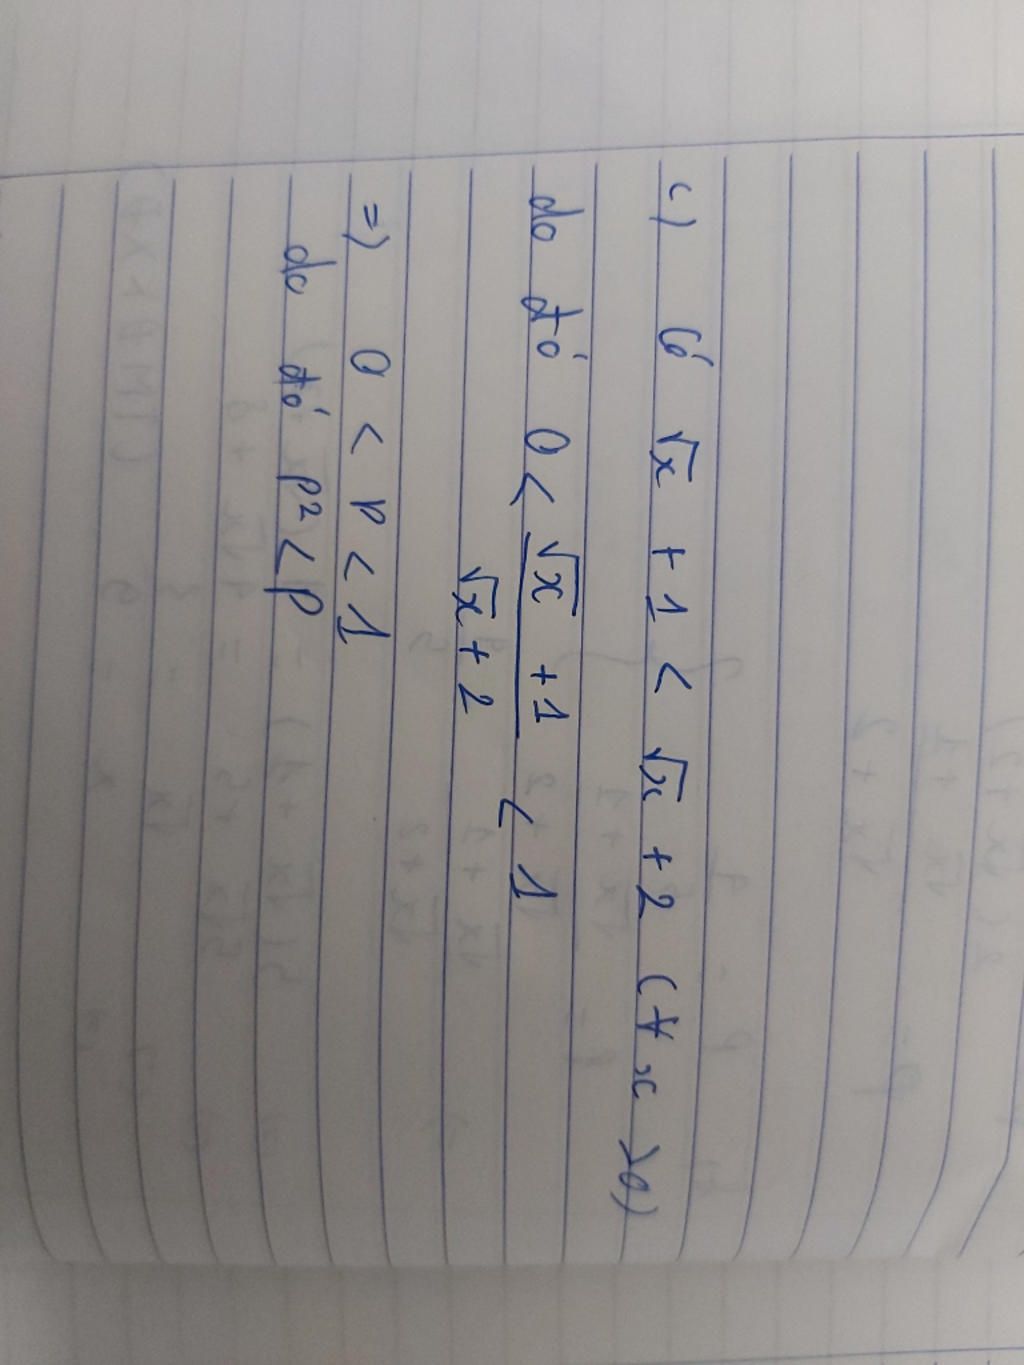 c) Có √x + 1 < √x + 2 (∀ x > 0)
do đó 0 < (√x + 1)/(√x + 2) < 1
=) 0 < P < 1
do đó P² < P